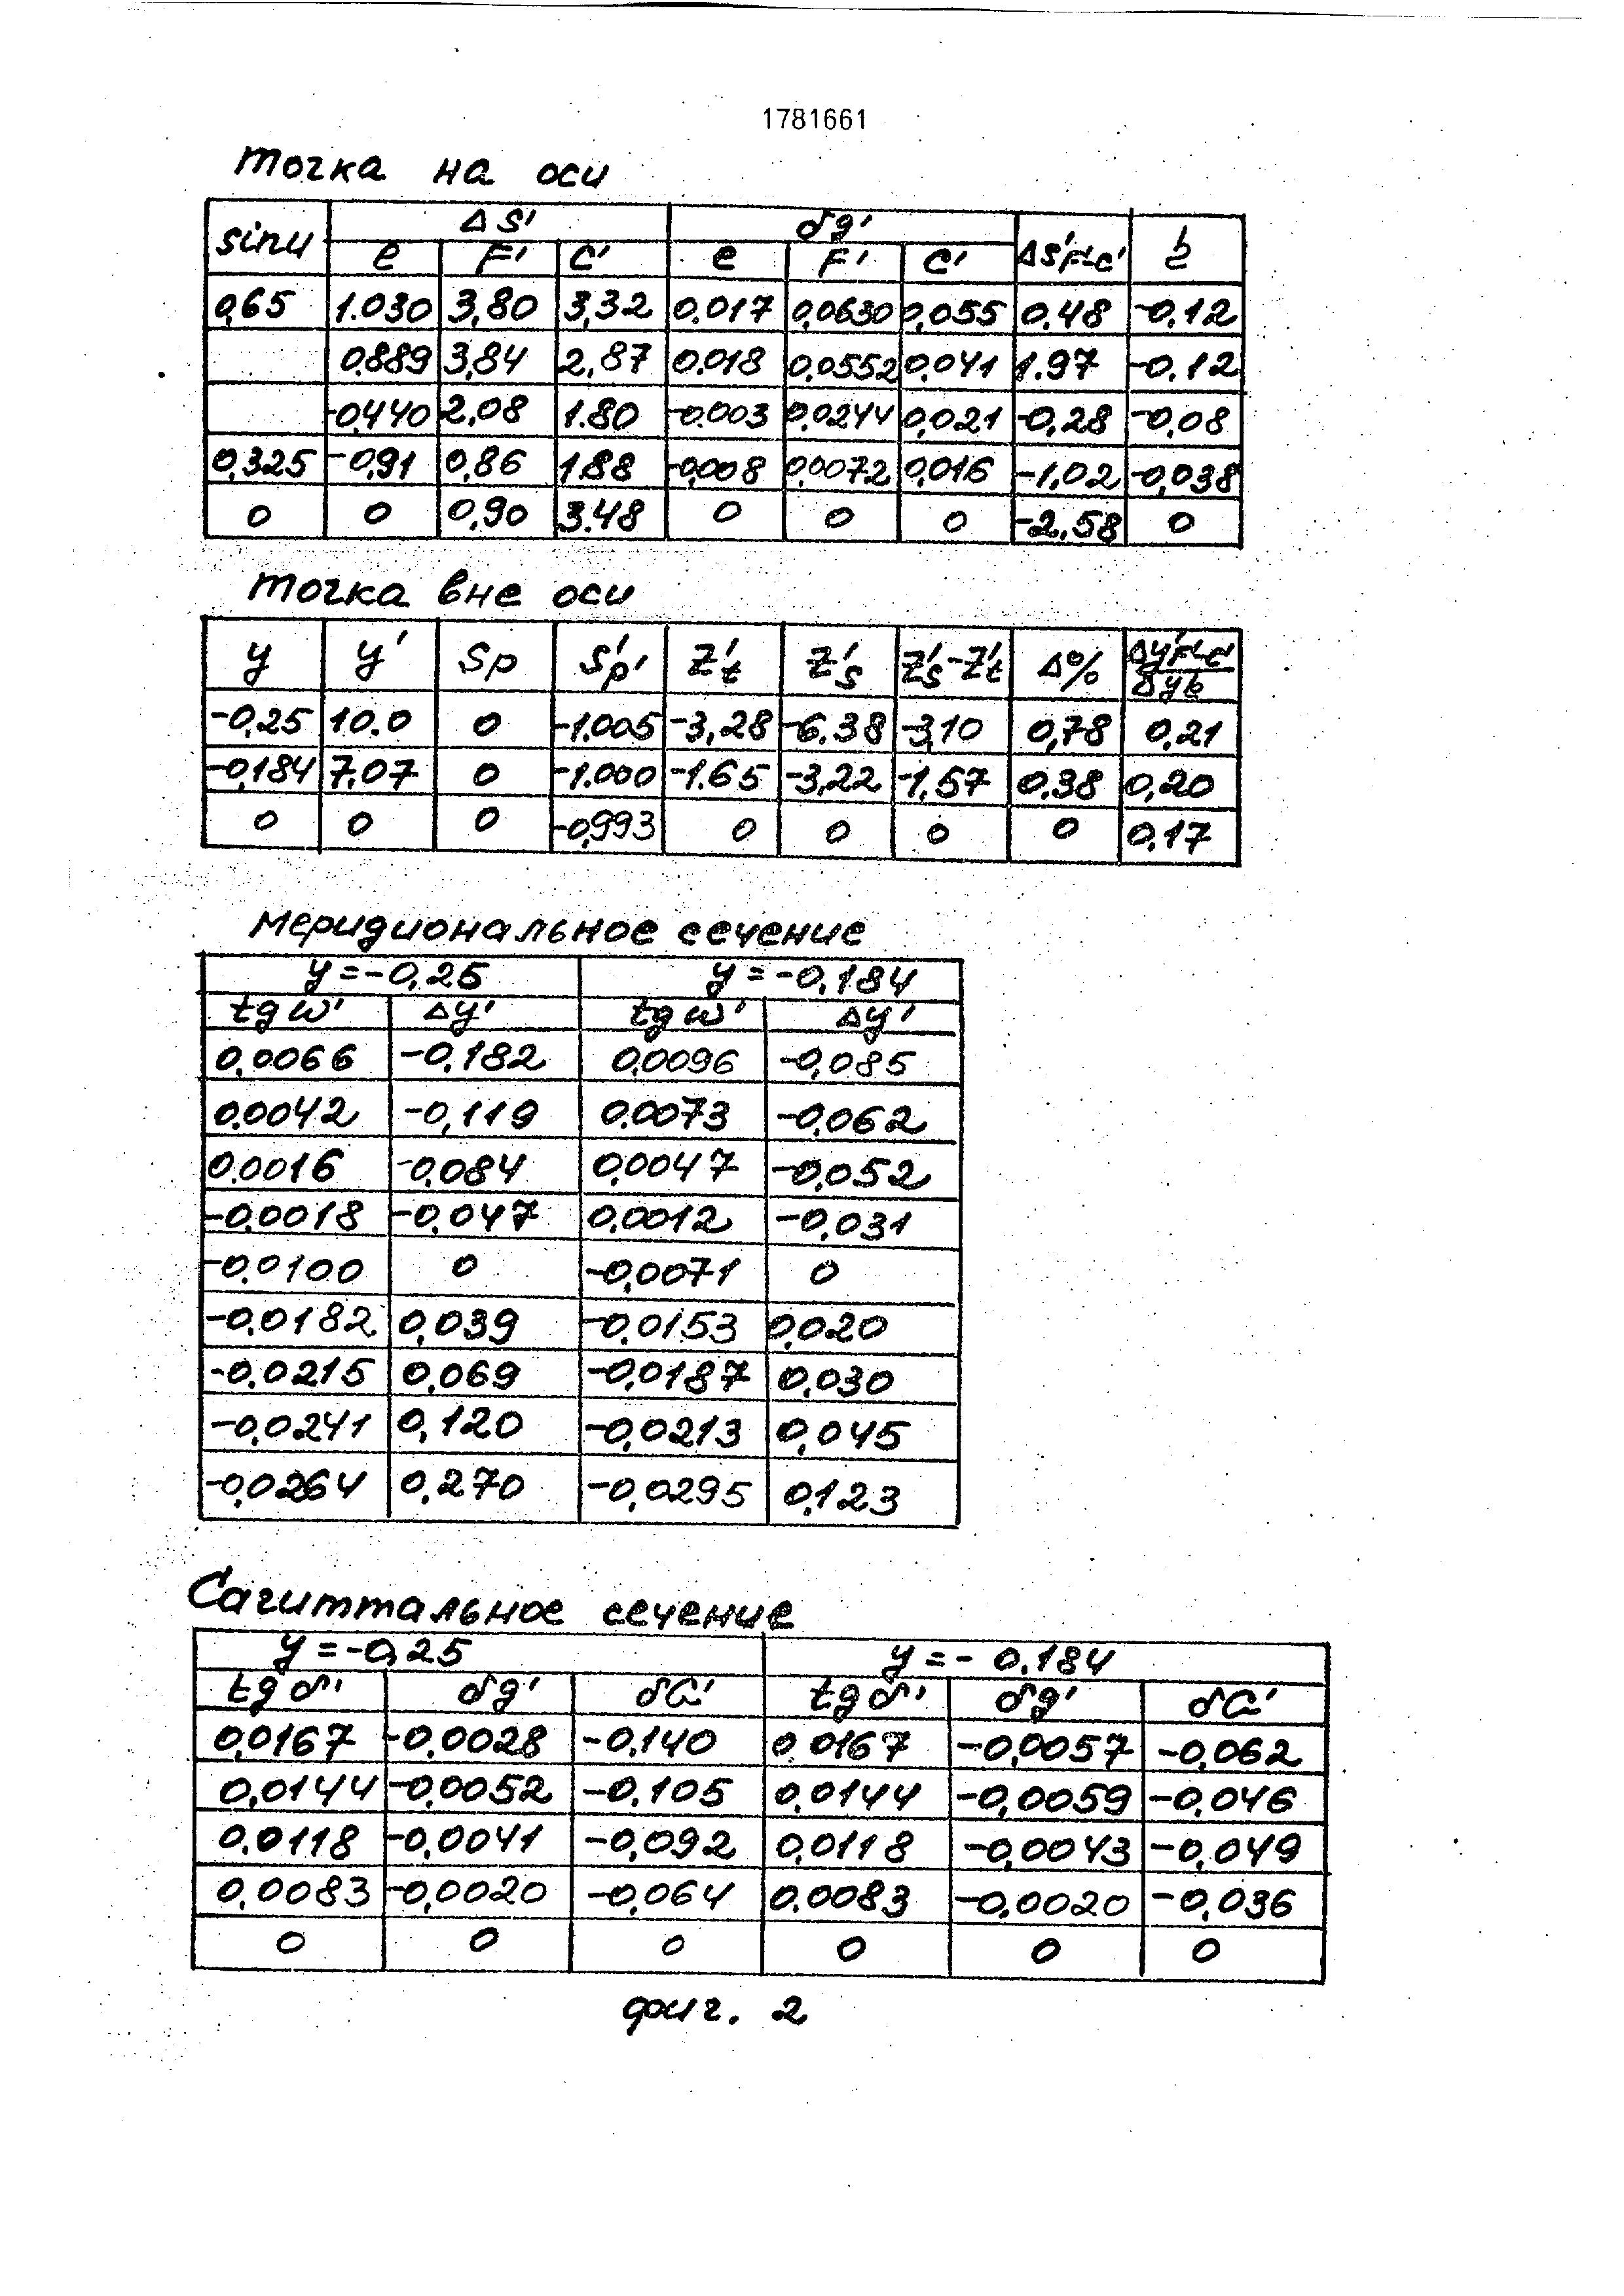 1781661
точка на оси
sinu ΔS' δg' ΔS'F'-C' b
e F' C' e F' C' e
0,65 1.030 3,80 3,32 0.017 0,0630 0,055 0.48 -0,12
0.889 3,84 2,87 0.018 0,0552 0,041 1.97 -0.12
-0,440 2,08 1.80 -0.003 0,0244 0,021 -0,28 -0,08
0,325 -0,91 0,86 1.88 -0,008 0,0072 0,016 -1,02 -0,038
0 0 0,90 3.48 0 0 0 -2,58 0
точка вне оси
y y' Sp S'p' Z't Z's Z's-Z't Δ% Δy'F'-C'
δyb
-0,25 10.0 0 -1.005 -3,28 -6.38 -3,10 0,78 0,21
-0,184 7,07 0 -1.000 -1.65 -3,22 -1,57 0.38 0,20
0 0 0 -0,993 0 0 0 0 0,17
меридиональное сечение
y=-0,25 y=-0,184
tgω' Δy' tgω' Δy'
0,0066 -0,182 0,0096 -0,085
0.0042 -0,119 0.0073 -0,062
0.0016 -0,084 0,0047 -0,052
-0,0018 -0,047 0,0012 -0,031
-0,0100 0 -0,0071 0
-0,0182 0,039 -0,0153 0,020
-0,0215 0,069 -0,0187 0,030
-0,0241 0,120 -0,0213 0,045
-0,0264 0,270 -0,0295 0,123
Сагиттальное сечение
y=-0,25 y=-0,184
tgδ' δg' δG' tgδ' δg' δG'
0,0167 -0,0028 -0,140 0,0167 -0,0057 -0,062
0,0144 -0,0052 -0,105 0,0144 -0,0059 -0,046
0,0118 -0,0041 -0,092 0,0118 -0,0043 -0,049
0,0083 -0,0020 -0,064 0,0083 -0,0020 -0,036
0 0 0 0 0 0
фиг. 2